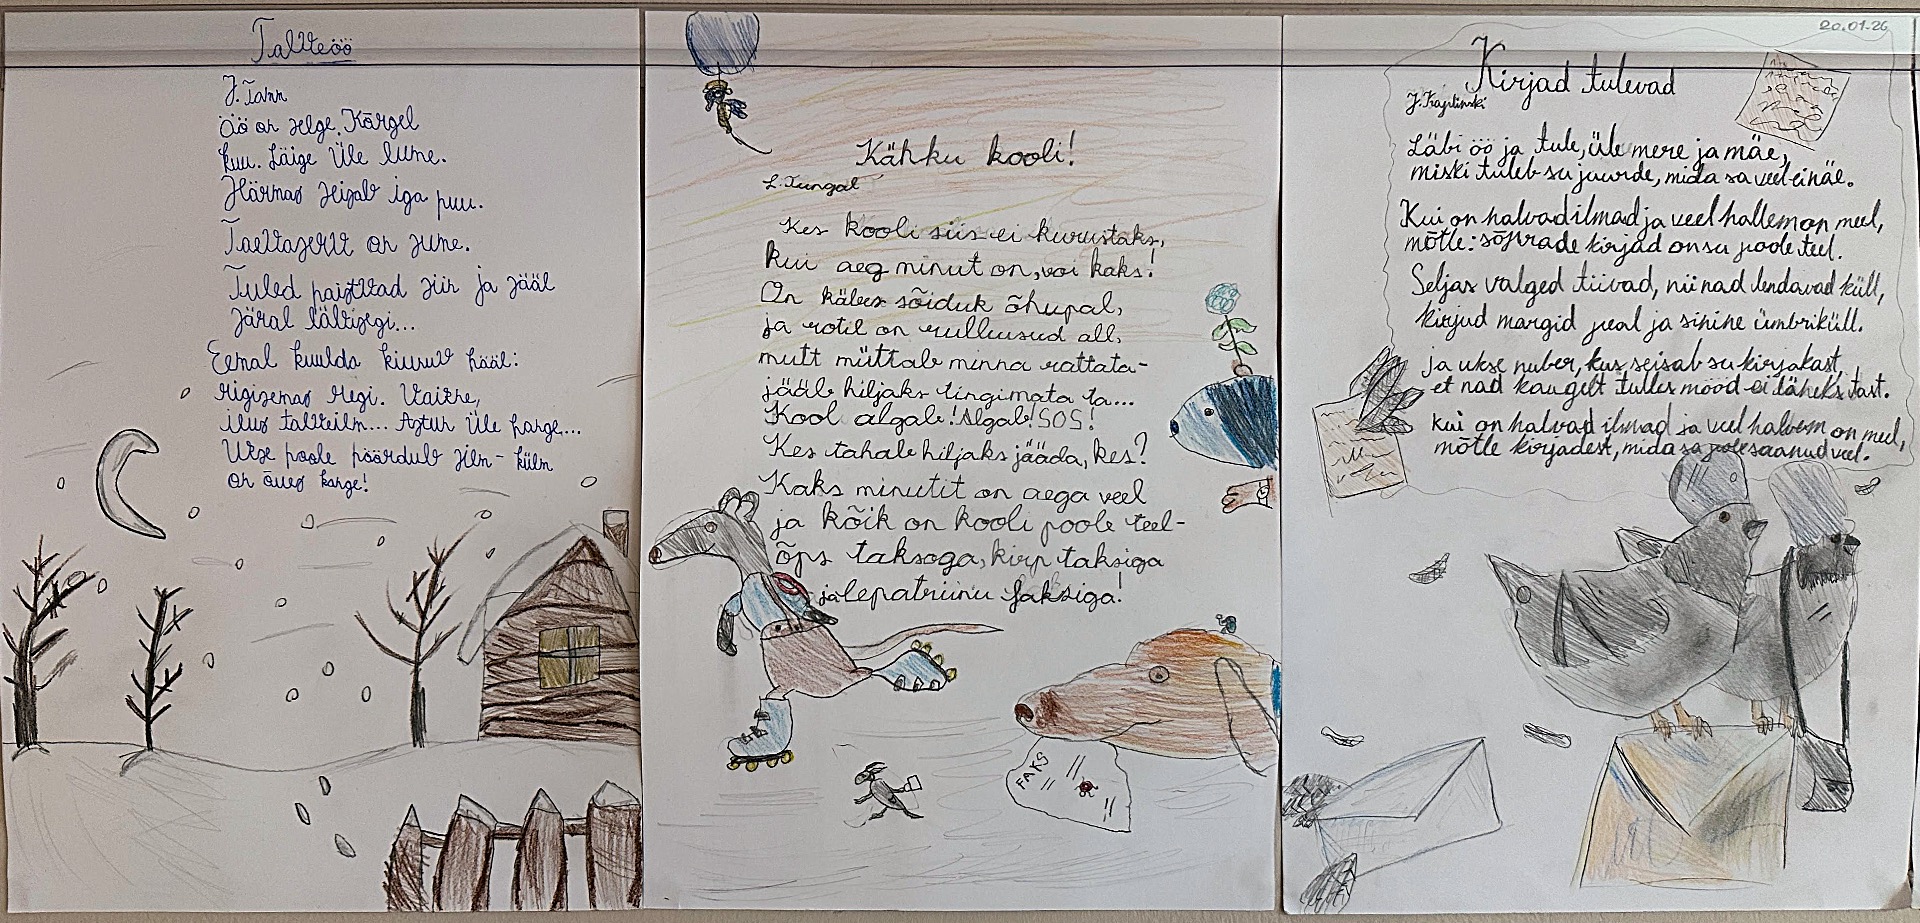 Talveöö
J. Tänn
Öö on selge. Kõrgel
kuu. Läige üle lume.
Härmas seisab iga puu.
Taevaserv on sume.
Tuled paistvad siin ja sääl
säral läbisegi...
Eemal kuulda kiuruv hääl:
rigisemas regi. Vaikne,
ilus talveilm... Astun üle hange...
Ukse poole pöördub silm - külm
on õues kange!
Kähku kooli!
L. Tungal
Kes kooli siis ei kiirustaks,
kui aeg minut on, või kaks!
On käbes sõiduk õhupal,
ja rotil on rulluisud all,
mutt müttab minna rattata-
jääb hiljaks tingimata ta...
Kool algab! Algab! SOS!
Kes tahab hiljaks jääda, kes?
Kaks minutit on aega veel
ja kõik on kooli poole teel-
õps taksoga, kirp taksiga
ja lepatriinu faksiga!
FAKS
20.01.26
Kirjad tulevad
J.
Läbi öö ja tule, üle mere ja mäe,
miski tuleb su juurde, mida sa veel ei näe.
Kui on halvad ilmad ja veel hallem on meel,
mõtle: sõprade kirjad on su poole teel.
Seljas valged tiivad, nii nad lendavad küll,
kirjud margid peal ja sinine ümbriküll.
ja ukse nuber, kus seisab su kirjakast,
et nad kaugelt tulles mööd ei läheks sast.
kui on halvad ilmad ja veel halvem on meel,
mõtle kirjadest, mida sa pole saanud veel.